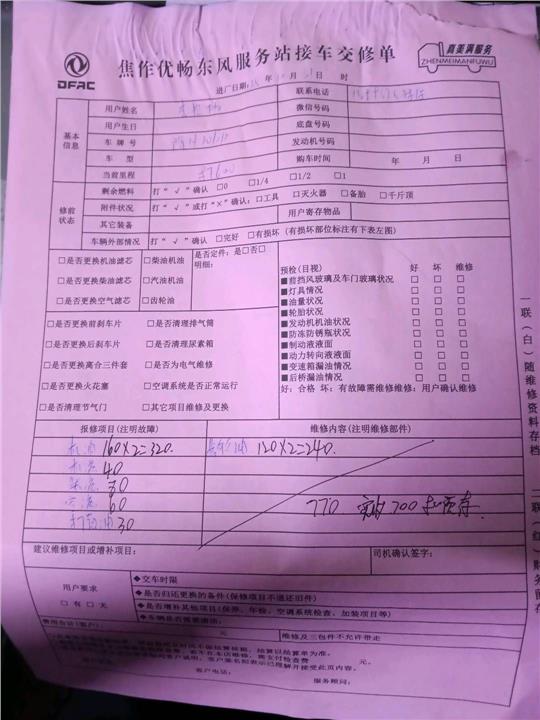 DFAC
焦作优畅东风服务站接车交修单
真美满服务
ZHENMEIMANFUWU
进厂日期: 年 月 日 时
基本信息
用户姓名 联系电话
用户生日 微信号码
车牌号 底盘号码
车型 发动机号码
当前里程 购车时间 年 月 日
修前状态
剩余燃料 打“√”确认 □0 □1/4 □1/2 □1
附件状况 打“√”或打“×”确认: □工具 □灭火器 □备胎 □千斤顶
其它装备 用户寄存物品
车辆外部情况 打“√”确认 □完好 □有损坏 (有损坏部位标注有下表左图)
□是否更换机油滤芯 □柴油机油 是否定件: 是□否□
明细:
□是否更换柴油滤芯 □汽油机油
□是否更换空气滤芯 □齿轮油
□是否更换前刹车片 □是否清理排气筒
□是否更换后刹车片 □是否清理尿素箱
□是否更换离合三件套 □是否为电气维修
□是否更换火花塞 □空调系统是否正常运行
□是否清理节气门 □其它项目维修及更换
预检(目视) 好 坏 维修
■前挡风玻璃及车门玻璃状况 □ □ □
■灯具情况 □ □ □
■油量状况 □ □ □
■轮胎状况 □ □ □
■发动机机油状况 □ □ □
■防冻防锈瓶状况 □ □ □
■制动液液面 □ □ □
■动力转向液液面 □ □ □
■变速箱漏油情况 □ □ □
■后桥漏油情况 □ □ □
好: 合格 坏: 有故障需维修维修: 用户确认维修
报修项目(注明故障) 维修内容(注明维修部件)
机油 160×2=320. 120×2=240.
40
30
60 770 700
30
建议维修项目或增补项目: 司机确认签字:
用户要求
□有 □无
◆交车时限
◆是否归还更换的备件(保修项目不退还旧件)
◆是否增补其他项目(保养、年检、空调系统检查、加装项目等)
◆车辆是否需要清洁:
费用合计(客户): 元 维修及三包件不允许带走
客户电话: 服务顾问:
一联(白)随维修资料存档
二联(红)财务